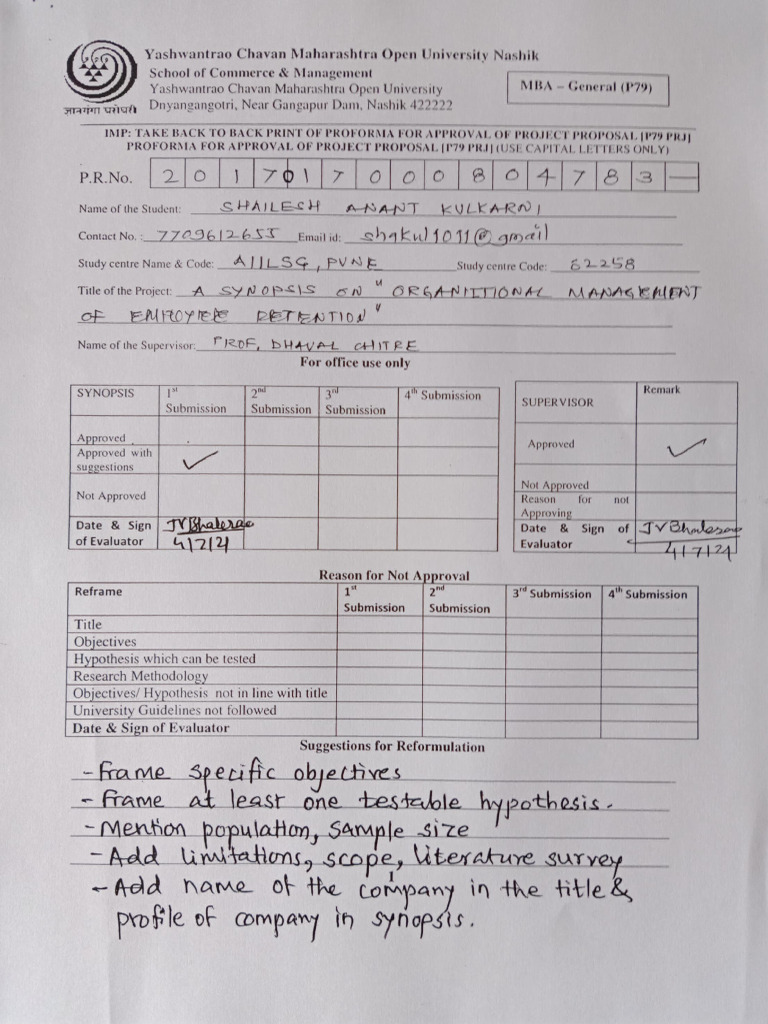 Yashwantrao Chavan Maharashtra Open University Nashik
School of Commerce & Management
Yashwantrao Chavan Maharashtra Open University
Dnyangangotri, Near Gangapur Dam, Nashik 422222
MBA – General (P79)
ज्ञानगंगा घरोघरी
IMP: TAKE BACK TO BACK PRINT OF PROFORMA FOR APPROVAL OF PROJECT PROPOSAL [P79 PRJ]
PROFORMA FOR APPROVAL OF PROJECT PROPOSAL [P79 PRJ] (USE CAPITAL LETTERS ONLY)
P.R.No. 2 0 1 7 0 1 7 0 0 0 8 0 4 7 8 3 —
Name of the Student: SHAILESH ANANT KULKARNI
Contact No. : 7709612655 Email id: shqkul1011@gmail
Study centre Name & Code: AIILSG, PUNE Study centre Code: 62258
Title of the Project: A SYNOPSIS ON " ORGANITIONAL MANAGEMENT
OF EMPLOYEE RETENTION"
Name of the Supervisor: PROF, DHAVAL CHITRE
For office use only
SYNOPSIS 1st Submission 2nd Submission 3rd Submission 4th Submission
Approved
Approved with suggestions ✓
Not Approved
Date & Sign of Evaluator JVBhalerao 4/7/21
SUPERVISOR Remark
Approved ✓
Not Approved
Reason for not Approving
Date & Sign of Evaluator JVBhalerao 4/7/21
Reason for Not Approval
Reframe 1st Submission 2nd Submission 3rd Submission 4th Submission
Title
Objectives
Hypothesis which can be tested
Research Methodology
Objectives/ Hypothesis not in line with title
University Guidelines not followed
Date & Sign of Evaluator
Suggestions for Reformulation
- Frame specific objectives
- Frame at least one testable hypothesis.
- Mention population, sample size
- Add limitations, scope, literature survey
- Add name of the company in the title &
profile of company in synopsis.